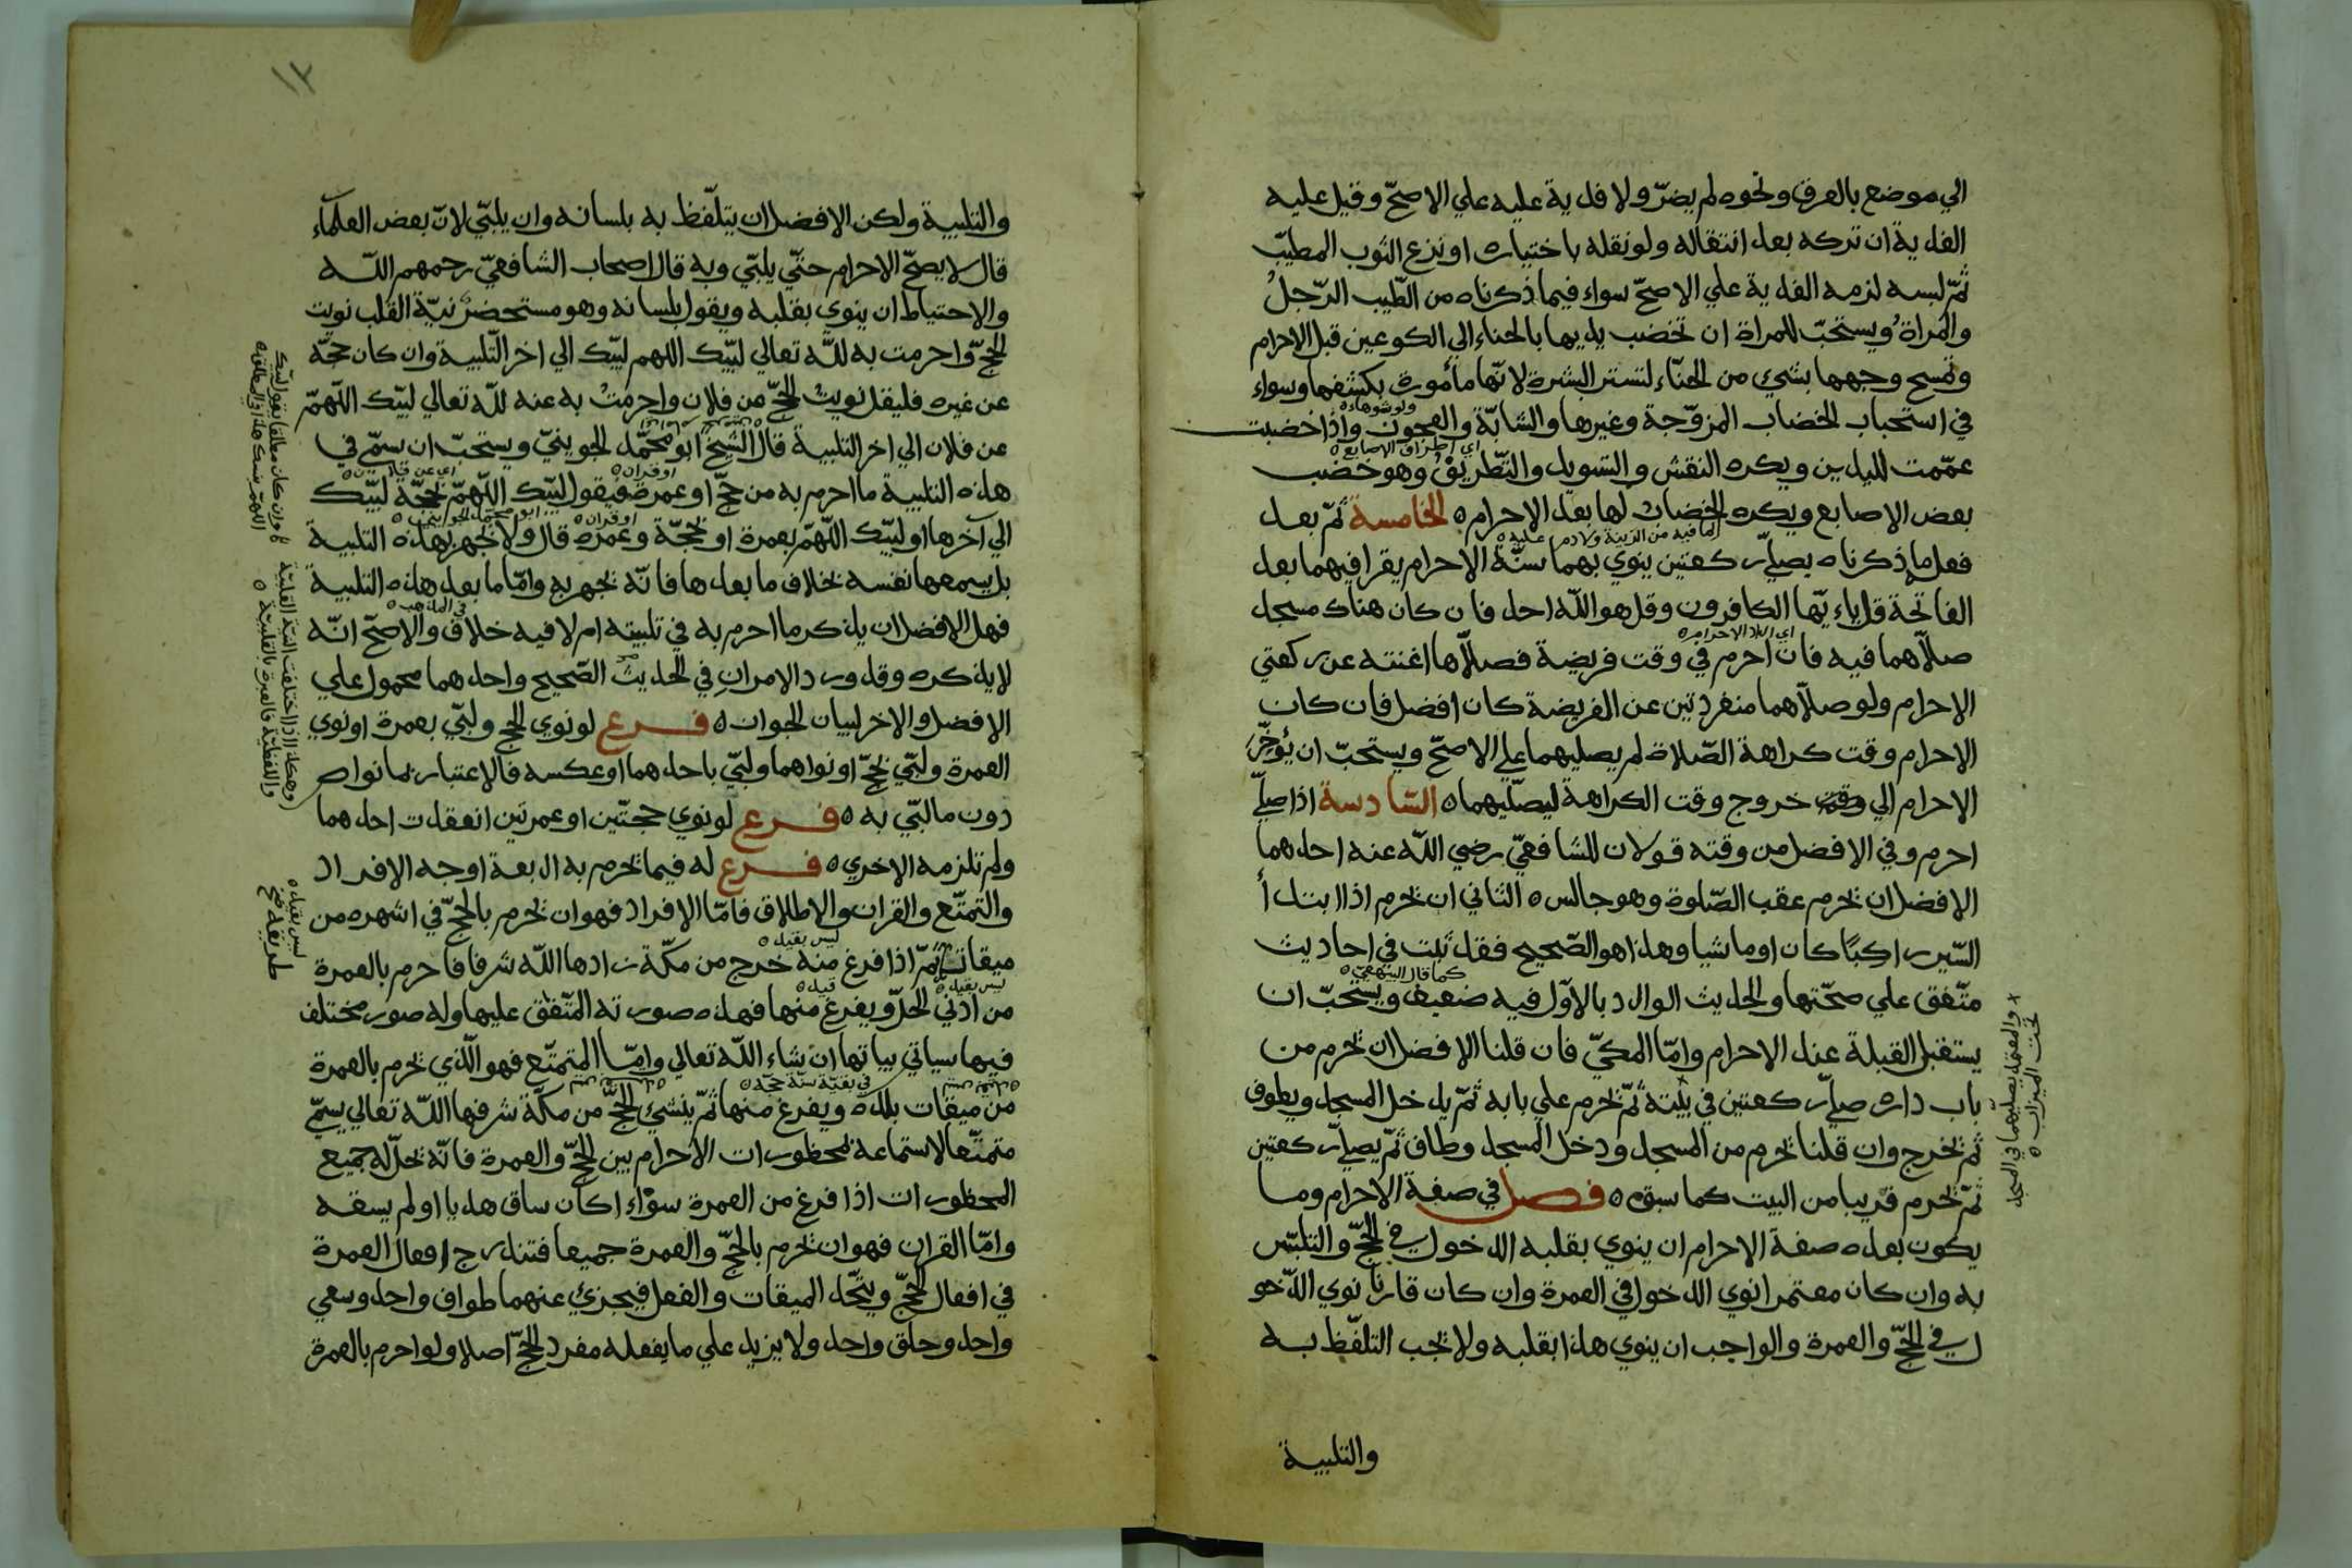 الي موضع بالعرق ونحوه لم يضرّ ولا فدية عليه علي الاصحّ وقيل عليه
الفدية ان تركه بعد انتقاله ولو نقله باختياره او نزع الثوب المطيّب
ثمّ لبسه لزمه الفدية علي الاصحّ سواء فيما ذكرناه من الطّيب الرّجل
والمراة ويستحبّ للمراة ان تخضب يديها بالحناء الي الكوعين قبل الاحرام
وتمسح وجهها بشيء من الحنّاء لتستر البشرة لانّها مأمورة بكشفها وسواء
في استحباب الخضاب المزوّجة وغيرها والشابّة والعجوز واذا خضبت
ولو شوهاء
عمّمت لليدين ويكره النقش والتسويد والتّطريف وهو خضب
اي اطراف الاصابع
بعض الاصابع ويكره الخضاب لها بعد الاحرام الخامسة ثمّ بعد
لما فيه من الزينة ولا دم عليه
فعل ما ذكرناه يصلّي ركعتين ينوي بهما سنّة الاحرام يقرا فيهما بعد
الفاتحة قل ياءيّها الكافرون وقل هو اللّه احد فان كان هناك مسجد
صلّاهما فيه فان احرم في وقت فريضة فصلّاها اغنته عن ركعتي
الاحرام ولو صلّاهما منفردتين عن الفريضة كان افضل فان كان
الاحرام وقت كراهة الصّلاة لم يصليهما علي الاصحّ ويستحبّ ان يؤخّر
الاحرام الي وقت خروج وقت الكراهة ليصلّيهما السّادسة اذا صلّي
احرم وفي الافضل من وقته قولان للشافعيّ رضي اللّه عنه احدهما
الافضل ان يحرم عقب الصّلوة وهو جالس الثاني ان يحرم اذا ابتدأ
السّير راكبًا كان او ماشيا وهذا هو الصّحيح فقد ثبت في احاديث
متّفق علي صحّتها والحديث الوارد بالاوّل فيه ضعيف ويستحبّ ان
كما قال البيهقيّ
يستقبل القبلة عند الاحرام وامّا المكيّ فان قلنا الافضل ان يحرم من
باب داره صلّي ركعتين في بيته ثمّ يحرم علي بابه ثمّ يدخل المسجد ويطوف
ثمّ يخرج وان قلنا يحرم من المسجد ودخل المسجد وطاف ثمّ يصلّي ركعتين
ثمّ يحرم قريبا من البيت كما سبق فصل في صفة الاحرام وما
يكون بعده صفة الاحرام ان ينوي بقلبه الدخول في الحجّ والتلبّس
به وان كان معتمرا نوي الدخول في العمرة وان كان قارنا نوي الدّخو
ل في الحجّ والعمرة والواجب ان ينوي هذا بقلبه ولا يجب التلفّظ به
والتلبية
والمعتمد يصليهما في المسجد
تحت الميزاب
١٢
والتلبية ولكن الافضل ان يتلفّظ به بلسانه وان يلبّي لانّ بعض العلماء
قال لا يصحّ الاحرام حتّي يلبّي وبه قال اصحاب الشافعيّ رحمهم اللّه
والاحتياط ان ينوي بقلبه ويقول بلسانه وهو مستحضر نيّة القلب نويت
الحجّ واحرمت به للّه تعالي لبّيك اللهم لبّيك الي اخر التّلبية وان كان حجّه
عن غيره فليقل نويت الحجّ من فلان واحرمت به عنه للّه تعالي لبّيك اللّهمّ
عن فلان الي اخر التلبية قال الشّيخ ابو محمّد الجوينيّ ويستحبّ ان يسمّي في
هذه التلبية ما احرم به من حجّ او عمرة فيقول لبّيك اللّهمّ بحجّة لبّيك
او قران
الي آخرها او لبّيك اللّهمّ بعمرة او بحجّة وعمرة قال ولا يجهر بهذه التلبية
او قران
ابو محمّد الجويني
بل يسمعها نفسه بخلاف ما بعدها فانّه يجهر به وامّا ما بعد هذه التلبية
فهل الافضل ان يذكر ما احرم به في تلبيته ام لا فيه خلاف والاصحّ انّه
في المذهب
لا يذكره وقد ورد الامران في الحديث الصّحيح واحدهما محمول علي
الافضل والاخر لبيان الجواز فرع لو نوي الحج ولبّي بعمرة او نوي
العمرة ولبّي بحجّ او نواهما ولبّي باحدهما او عكسه فالاعتبار بما نواه
دون ما لبّي به فرع لو نوي حجتّين او عمرتين انعقدت احدهما
ولم تلزمه الاخري فرع له فيما يحرم به اربعة اوجه الافراد
والتمتّع والقران والاطلاق فامّا الافراد فهو ان يحرم بالحجّ في اشهره من
ميقاته ثمّ اذا فرغ منه خرج من مكّة زادها اللّه شرفا فاحرم بالعمرة
ليس بقيد
من ادني الحلّ ويفرغ منها فهذه صورته المتّفق عليها وله صور مختلف
ليس بقيد
قيد
فيها سياتي بيانها ان شاء اللّه تعالي وامّا المتمتّع فهو الّذي يحرم بالعمرة
من ميقات بلده ويفرغ منها ثمّ ينشئ الحجّ من مكّة شرفها اللّه تعالي يسمّي
في بقيّة سنة حجّه
متمتّعا لاستماعه بمحظورات الاحرام بين الحجّ والعمرة فانّه تحلّ له جميع
المحظورات اذا فرغ من العمرة سواء اكان ساق هديا او لم يسقه
وامّا القران فهو ان يحرم بالحجّ والعمرة جميعا فتندرج افعال العمرة
في افعال الحجّ ويتّحد الميقات والفعل فيجزئ عنهما طواف واحد وسعي
واحد وحلق واحد ولا يزيد علي ما يفعله مفرد الحجّ اصلا ولو احرم بالعمرة
وان كان مطلقا يقول لبّيك
وهكذا اذا اختلفت النيّة القلبيّة
واللفظيّة فالعبرة بالقلبيّة
ليس بقيد